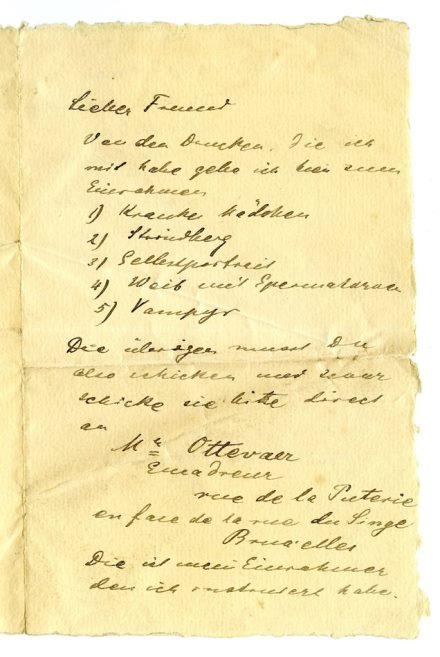 Lieber Freund
Von den Drucken, die ich
mit habe gebe ich hier zum
Einrahmen
1) Kranke Mädchen
2) Strindberg
3) Selbstportrait
4) Weib mit Spermatozoen
5) Vampyr
Die übrigen musst Du
also schicken und zwar
schicke sie bitte direct
an
Mr Ottevaer
Encadreur
rue de la Puterie
en face de la rue du Singe
Bruxelles
Die ist mein Einrahmer
den ich instruiert habe.